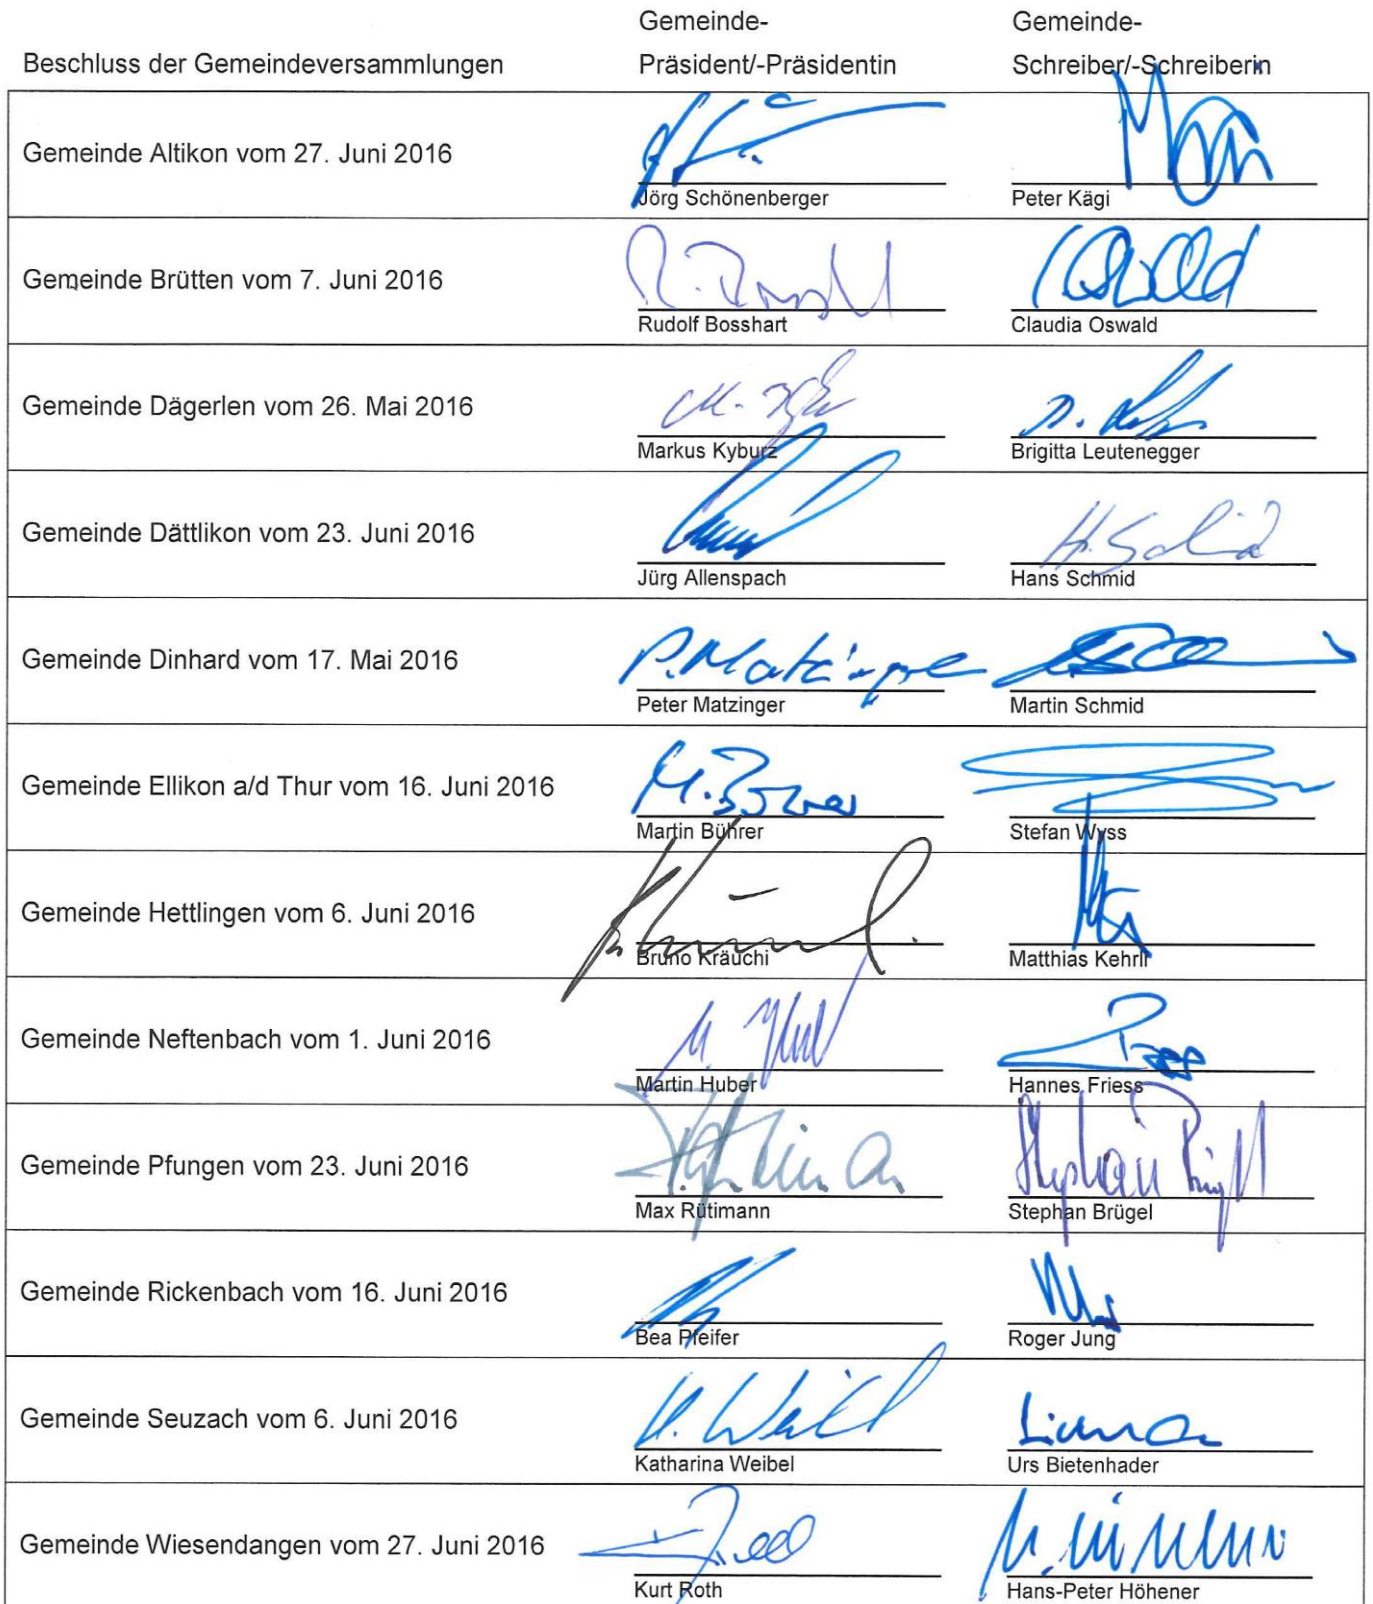 Gemeinde- Gemeinde-
Beschluss der Gemeindeversammlungen Präsident/-Präsidentin Schreiber/-Schreiberin
Gemeinde Altikon vom 27. Juni 2016
Jörg Schönenberger Peter Kägi
Gemeinde Brütten vom 7. Juni 2016
Rudolf Bosshart Claudia Oswald
Gemeinde Dägerlen vom 26. Mai 2016
Markus Kyburz Brigitta Leutenegger
Gemeinde Dättlikon vom 23. Juni 2016
H. Schmid
Jürg Allenspach Hans Schmid
Gemeinde Dinhard vom 17. Mai 2016
P. Matzinger
Peter Matzinger Martin Schmid
Gemeinde Ellikon a/d Thur vom 16. Juni 2016
Martin Bührer Stefan Wyss
Gemeinde Hettlingen vom 6. Juni 2016
Bruno Kräuchi Matthias Kehrli
Gemeinde Neftenbach vom 1. Juni 2016
Martin Huber Hannes Friess
Gemeinde Pfungen vom 23. Juni 2016
Max Rütimann Stephan Brügel
Gemeinde Rickenbach vom 16. Juni 2016
Bea Pfeifer Roger Jung
Gemeinde Seuzach vom 6. Juni 2016
Katharina Weibel Urs Bietenhader
Gemeinde Wiesendangen vom 27. Juni 2016
Kurt Roth Hans-Peter Höhener